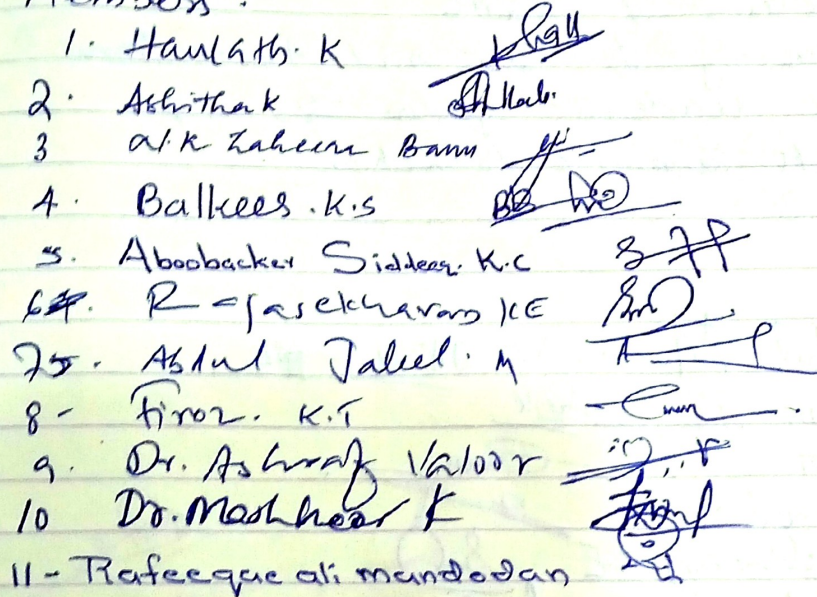 Members:
1. Haulath. K
2. Ashitha K
3 A.K Zaheera Banu
4. Balkees. K.S
5. Aboobacker Siddeeq. K.C
6. Rajasekharan KE
7. Abdul Jaleel. M
8 - Firoz. K.T
9. Dr. Ashraf Valoor
10 Dr. Mashhoor K
11 - Rafeeque ali mandodan